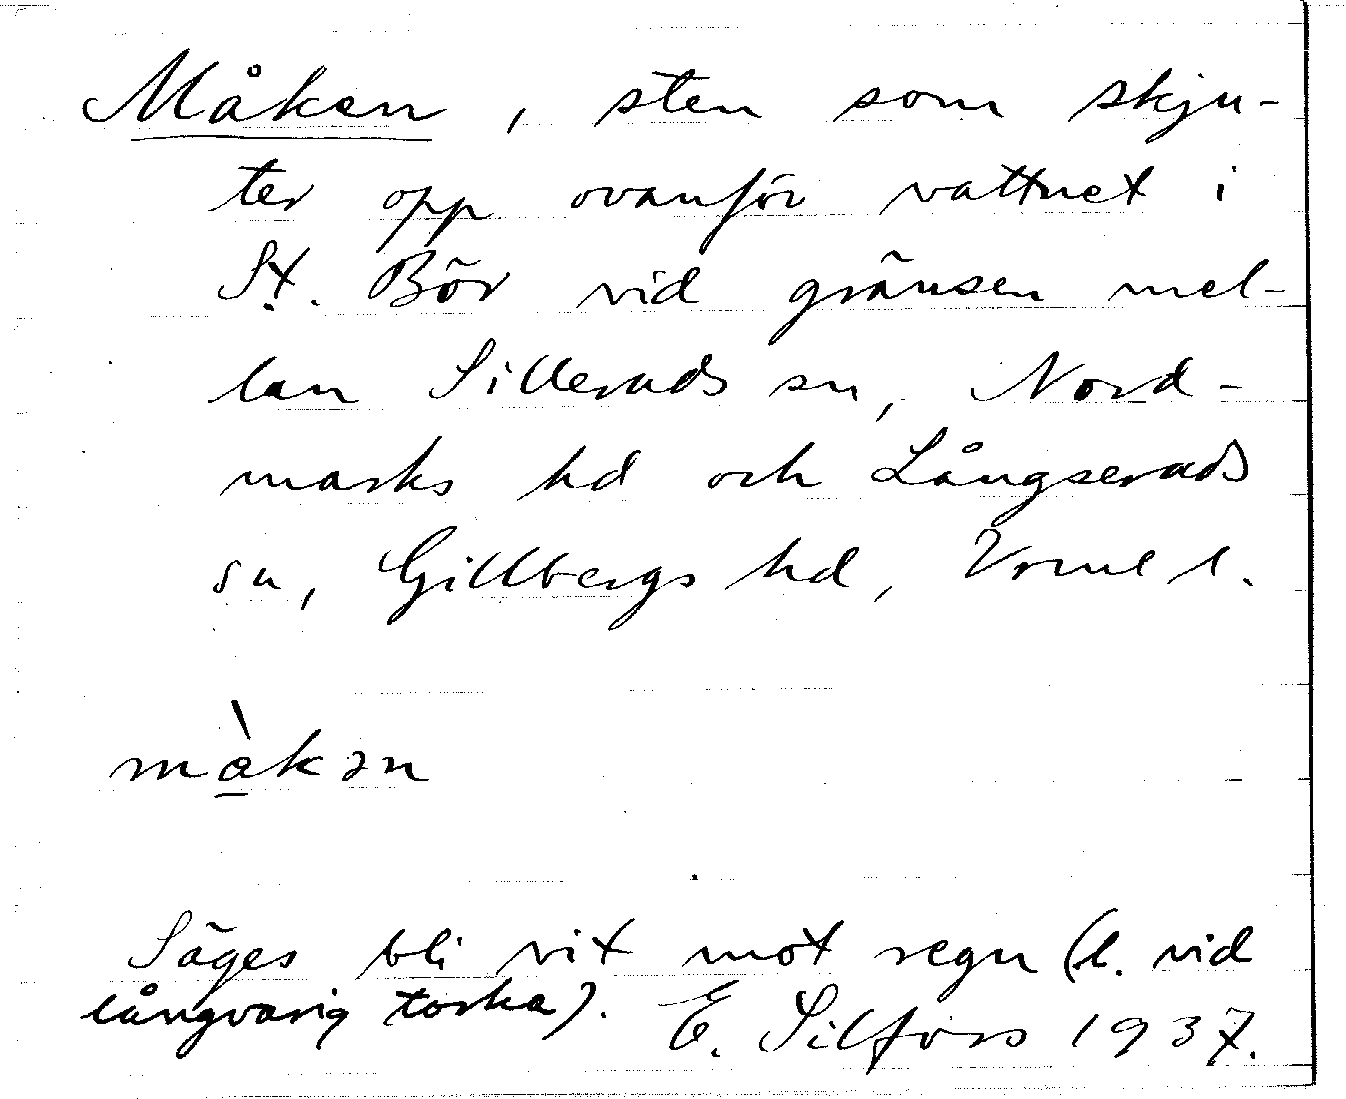 Måken, sten som skju-
ter opp ovanför vattnet i
St. Bör vid gränsen mel-
lan Sillerads sn, Nord-
marks hd och Långserads
sn, Gillbergs hd, Vrml l.
mà̱kən
Säges bli vit mot regn (l. vid
långvarig torka). E. Silfors 1937.